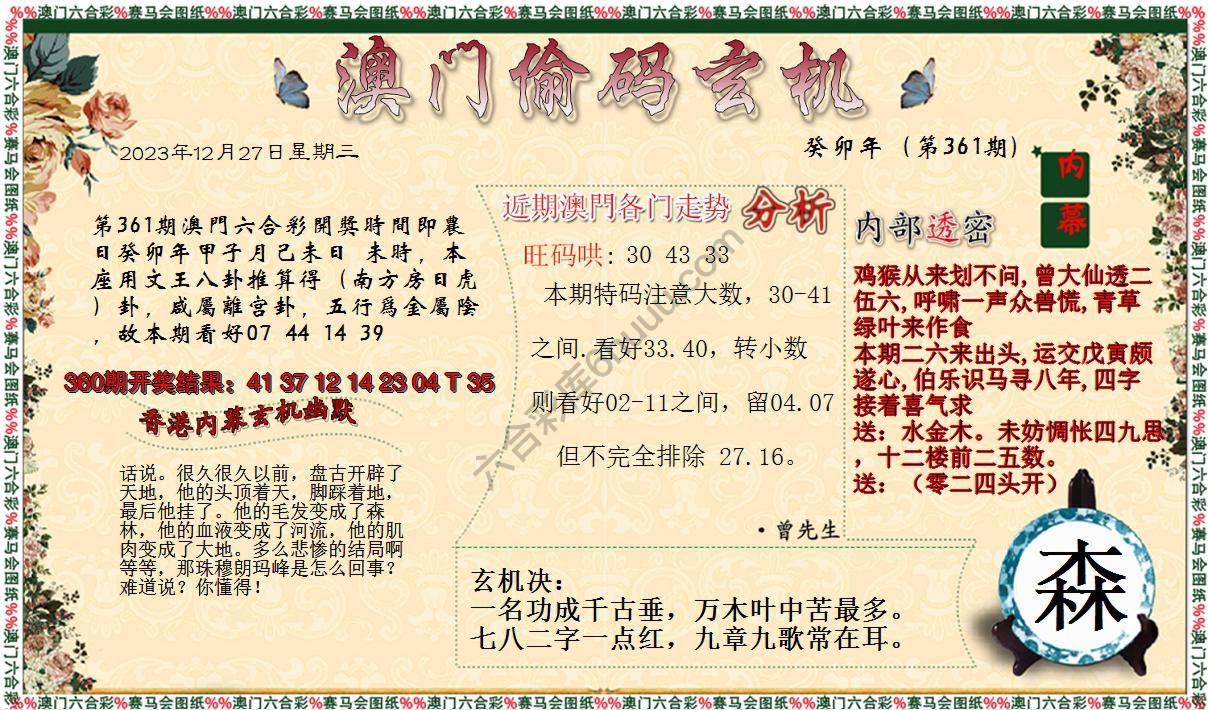 %%澳门六合彩%赛马会图纸%%澳门六合彩%赛马会图纸%%澳门六合彩%赛马会图纸%%澳门六合彩%赛马会图纸%%澳门六合彩%赛马会图纸%%澳门六合彩%赛马会图纸%%
澳门偷码玄机
2023年12月27日星期三
癸卯年（第361期）
第361期澳門六合彩開獎時間即農
日癸卯年甲子月己未日 未時，本
座用文王八卦推算得（南方房日虎
）卦，咸屬離宫卦，五行爲金屬陰
，故本期看好07 44 14 39
360期开奖结果：41 37 12 14 23 04 T 35
香港内幕玄机幽默
话说。很久很久以前，盘古开辟了
天地，他的头顶着天，脚踩着地，
最后他挂了。他的毛发变成了森
林，他的血液变成了河流，他的肌
肉变成了大地。多么悲惨的结局啊
等等，那珠穆朗玛峰是怎么回事？
难道说？你懂得！
近期澳門各门走势 分析
旺码哄：30 43 33
本期特码注意大数，30-41
之间.看好33.40，转小数
则看好02-11之间，留04.07
但不完全排除 27.16。
·曾先生
玄机决：
一名功成千古垂，万木叶中苦最多。
七八二字一点红，九章九歌常在耳。
内部透密
内幕
鸡猴从来划不问,曾大仙透二
伍六,呼啸一声众兽慌,青草
绿叶来作食
本期二六来出头,运交戊寅颇
遂心,伯乐识马寻八年,四字
接着喜气求
送：水金木。未妨惆怅四九思
，十二楼前二五数。
送：（零二四头开）
森
六合彩库6huuu.com
%%澳门六合彩%赛马会图纸%%澳门六合彩%赛马会图纸%%澳门六合彩%赛马会图纸%%澳门六合彩%赛马会图纸%%澳门六合彩%赛马会图纸%%澳门六合彩%赛马会图纸%%